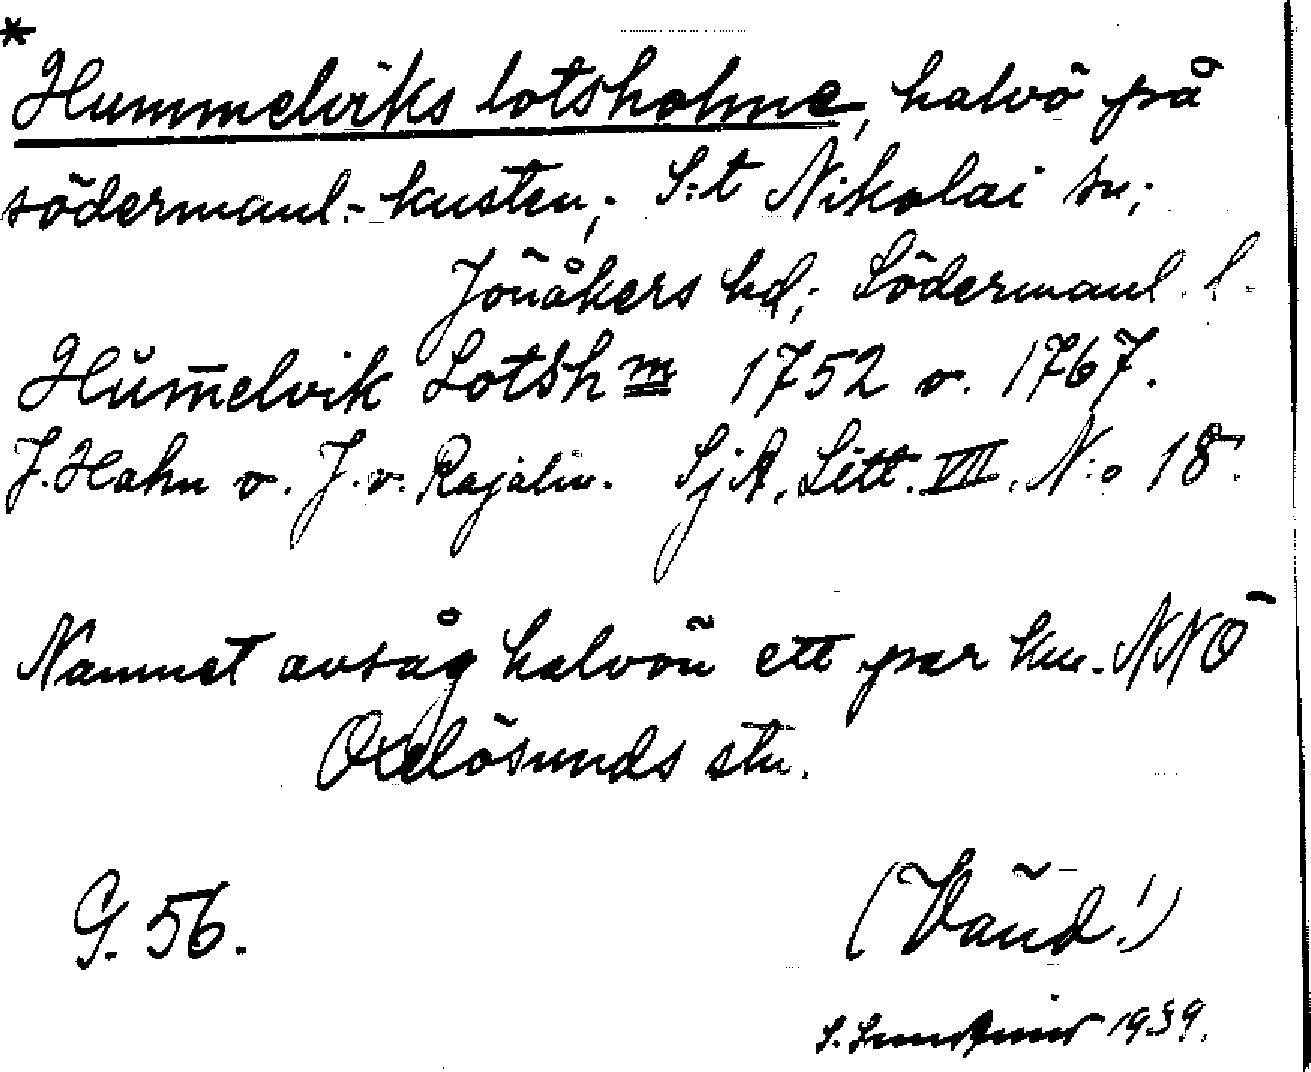 *
Hummelviks lotsholme, halvö på
södermanl.-kusten; S:t Nikolai sn;
Jönåkers hd; Södermanl. l.
Hum̄elvik Lotshm 1752 o. 1767.
J. Hahn o. J. v. Rajalin. SjA, Litt. VII, N:o 18.
Namnet avsåg halvön ett par km. NNO
Oxelösunds stn.
G. 56.
(Vänd!)
S. 1939.